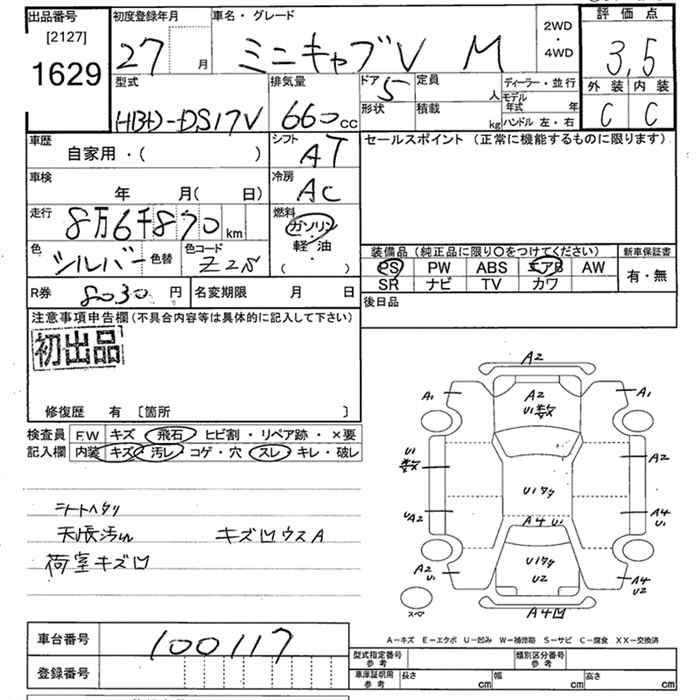 出品番号
[2127]
1629
初度登録年月
27 月
車名・グレード
ミニキャブV M
2WD
・
4WD
評価点
3.5
外装 内装
C C
型式
HBD-DS17V
排気量
660cc
ドア
5
形状
定員
人
積載
kg
ディーラー・並行
モデル年式 年
ハンドル 左・右
車歴
自家用・( )
シフト
AT
セールスポイント (正常に機能するものに限ります)
車検
年 月( 日)
冷房
AC
走行
8万6千870km
燃料
ガソリン
・
軽油
( )
色
シルバー
色替
色コード
Z25
装備品(純正品に限り○をつけてください)
PS PW ABS エアB AW
SR ナビ TV カワ
新車保証書
有・無
R券
8030円
名変期限 月 日
後日品
注意事項申告欄(不具合内容等は具体的に記入して下さい)
初出品
修復歴 有 [箇所 ]
検査員記入欄
F.W キズ・飛石・ヒビ割・リペア跡・×要
内装 キズ・汚レ・コゲ・穴・スレ・キレ・破レ
シートヘタリ
天張汚れ キズ凹ウスA
荷室キズ凹
A2
A1
A2
U1数
A1
U1
数
A2
U1
UA2
A4 U1
A4
U1
A2
U1
U2
A4
U2
スペア
A4凹
A-キズ E-エクボ U-凹み W-補修跡 S-サビ C-腐食 XX-交換済
車台番号
100117
登録番号
型式指定番号
参考
類別区分番号
参考
車庫証明用
参考
長さ cm
幅 cm
高さ cm